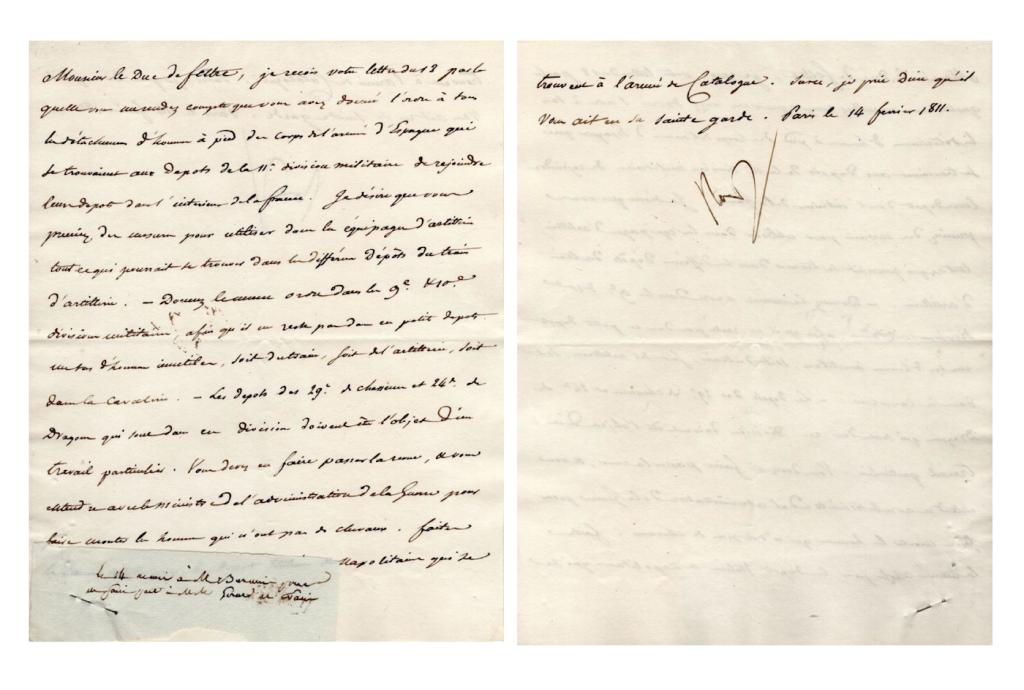 Monsieur le Duc de feltre, je reçois votre lettre du 13 par la
quelle vous me rendez compte que vous avez donné l'ordre à tous
les détachemens d'hommes à pied des corps de l'armée d'Espagne qui
se trouvaient aux Depots de la 11e. division militaire de rejoindre
leur depot dans l'intérieur de la france. Je désire que vous
preniez des mesures pour utiliser dans les équipages d'artillerie
tout ce qui pourrait se trouver dans les différens Dépôts du train
d'artillerie. — Donnez le même ordre dans les 9e. & 10e.
divisions militaires, afin qu'il ne reste pas dans ces petits depots
un tas d'hommes inutiles, soit du train, soit de l'artillerie, soit
dans la cavalerie. — Les depots des 29e. de chasseurs et 24e. de
Dragons qui sont dans ces divisions doivent être l'objet d'un
travail particulier. Vous devez en faire passer la revue, & vous
entendre avec le Ministre de l'administration de la Guerre pour
faire monter les hommes qui n'ont pas de chevaux. faites
Napolitains qui se
Le 14 remis à M. pour
en faire part à MM. Gérard et
trouvent à l'armée de Catalogne. Surce, je prie Dieu qu'il
Vous ait en sa sainte garde. Paris le 14 fevrier 1811.